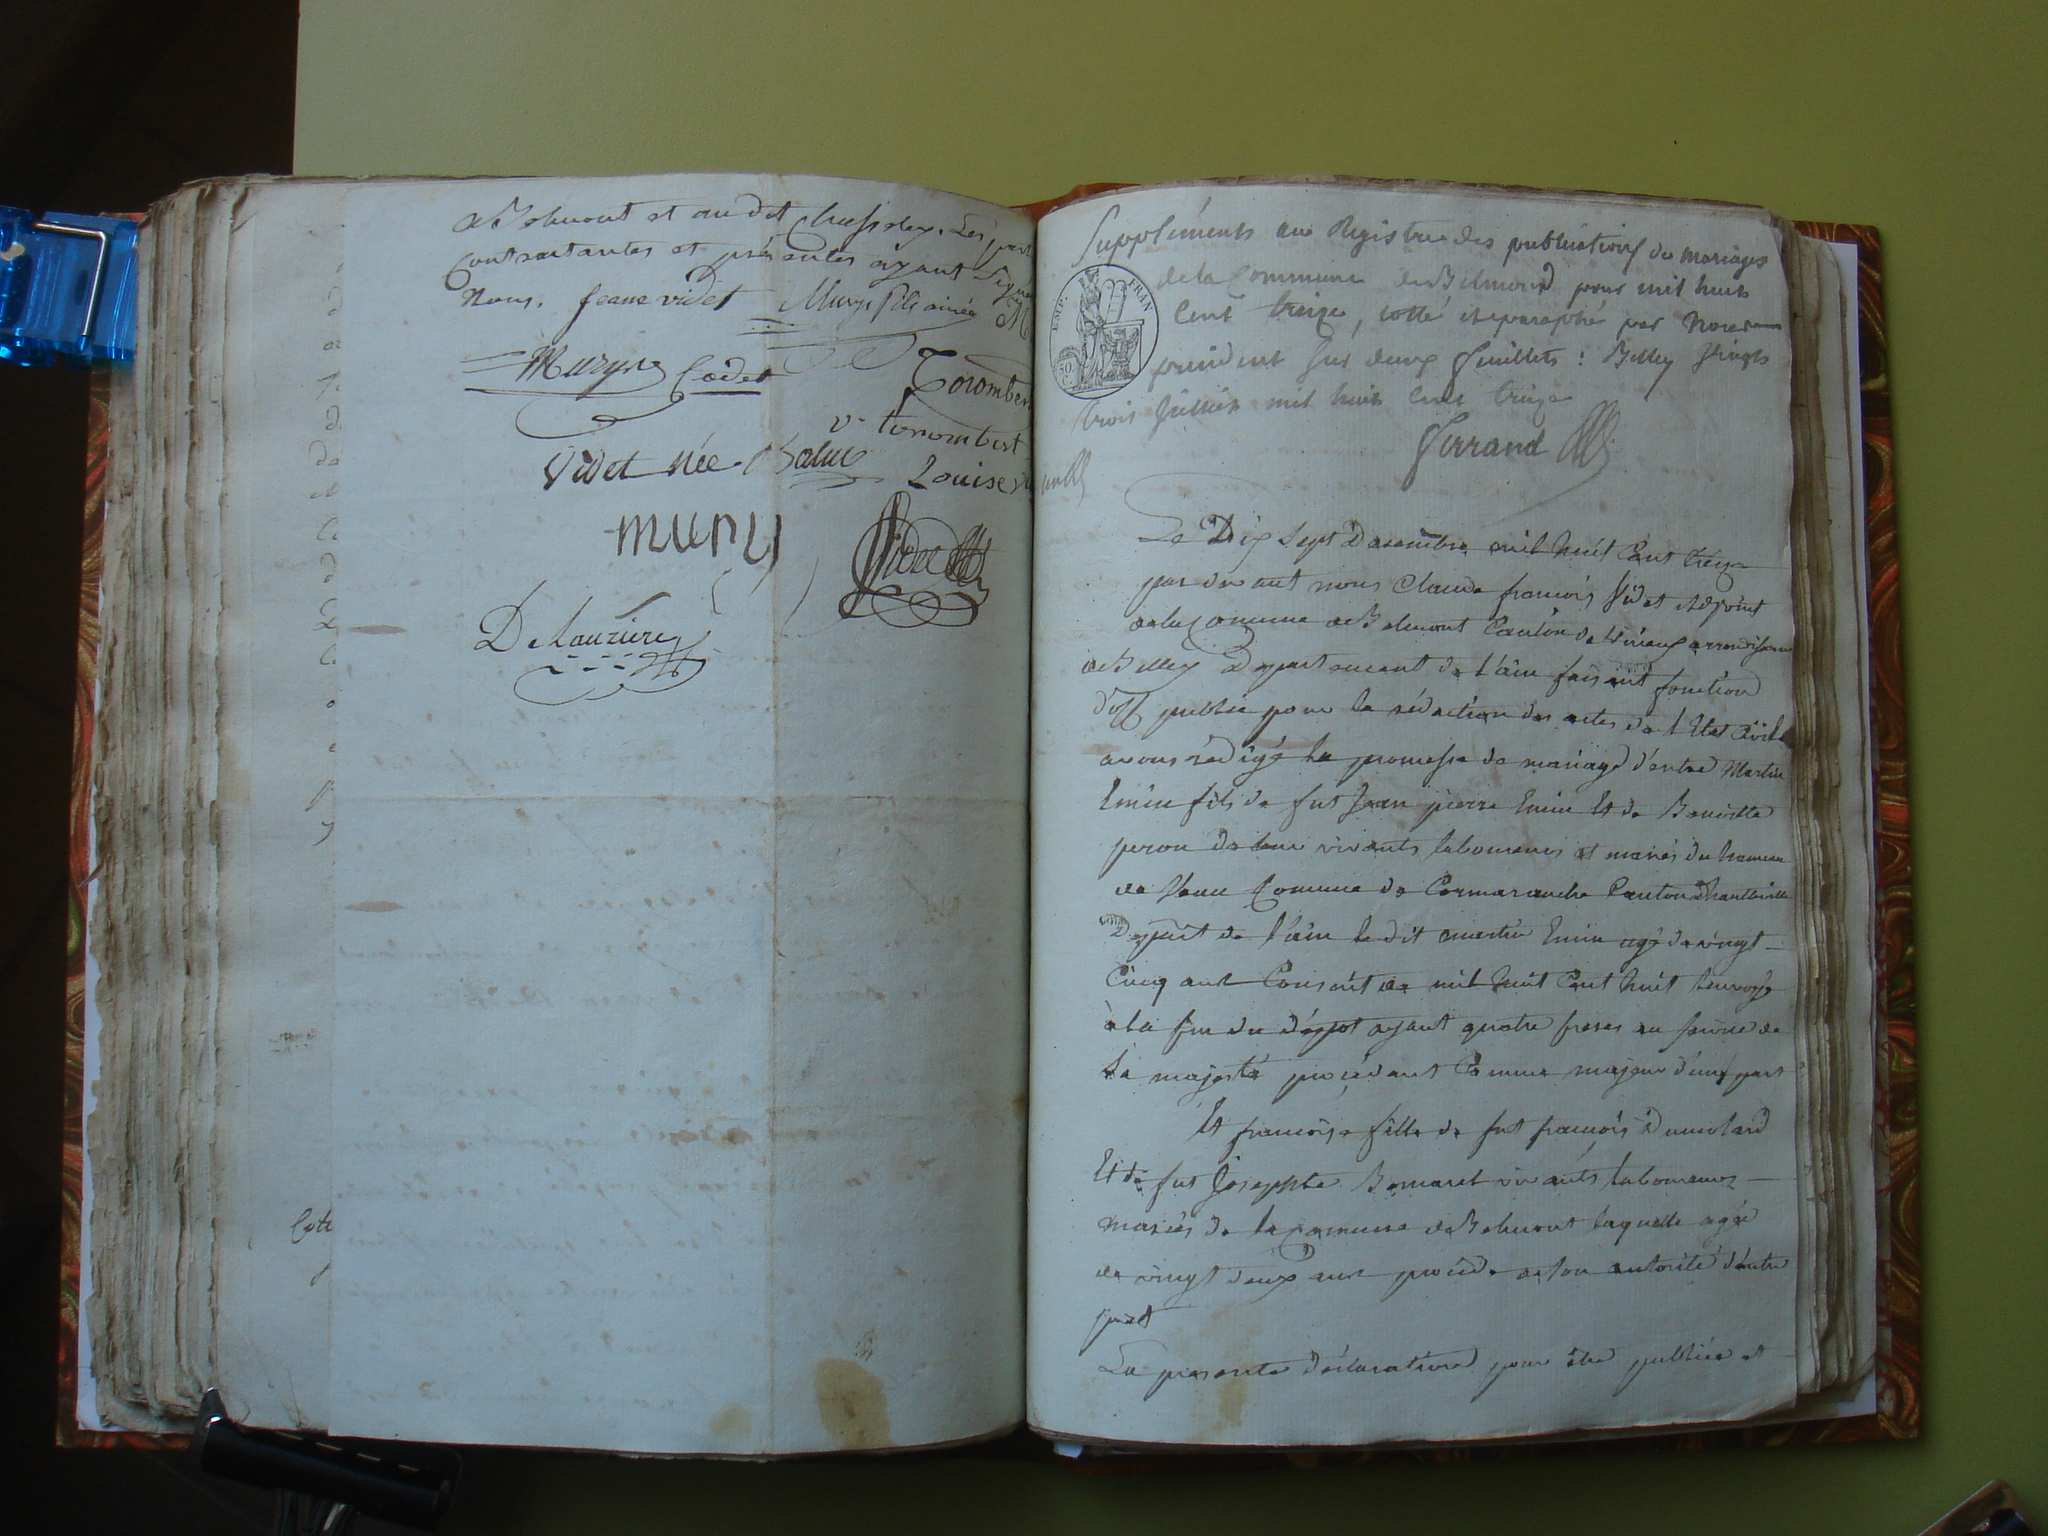 de Belmont et au dit Les part
Contractantes et présentes ayant Signé
Nous. jeane videt Mury fils ainée
Mury Cadet
Torombert
v. torombert
Videt née Balme
Louise
mury
Videt
Delauziere
Suppléments au Registre des publications de mariages
de la Commune de Belmond pour mil huit
Cent treize, cotté et paraphé par Nous
president sur deux feuillets : Belley Vingt
trois Juillet mil huit Cent treize
Ferrand
EMP. FRAN
50.
Le Dix Sept Decembre mil huit Cent treize
par devant nous Claude francois Videt Adjoint
de la Comune de Belmont Canton de virieux arrondissem
de Belley Departement de l'ain faisant fonction
d'off publie pour la rédaction des actes de l'Etat Civil
avons rédigé la promesse de mariage d'entre Martin
Emin fils de fut Jean pierre Emin Et de Benoitte
peron de leur vivants laboureurs et mariés du hameau
de Vaux Comune de Cormaranche Canton d'hauteville
Depart de l'ain le dit martin Emin agé de vingt
Cinq ans Conscrit de mil huit Cent huit Renvoyé
à la fin du dépot ayant quatre freres au service de
Sa majesté procédant Comme majeur d'une part
Et francoise fille de fut francois Dumolard
Et de fut Josephte Bornaret vivants laboureurs
mariés de la Comune de Belmont laquelle agée
de vingt deux ans procede de son autorité d'autre
part
La presente déclaration pour être publiée et